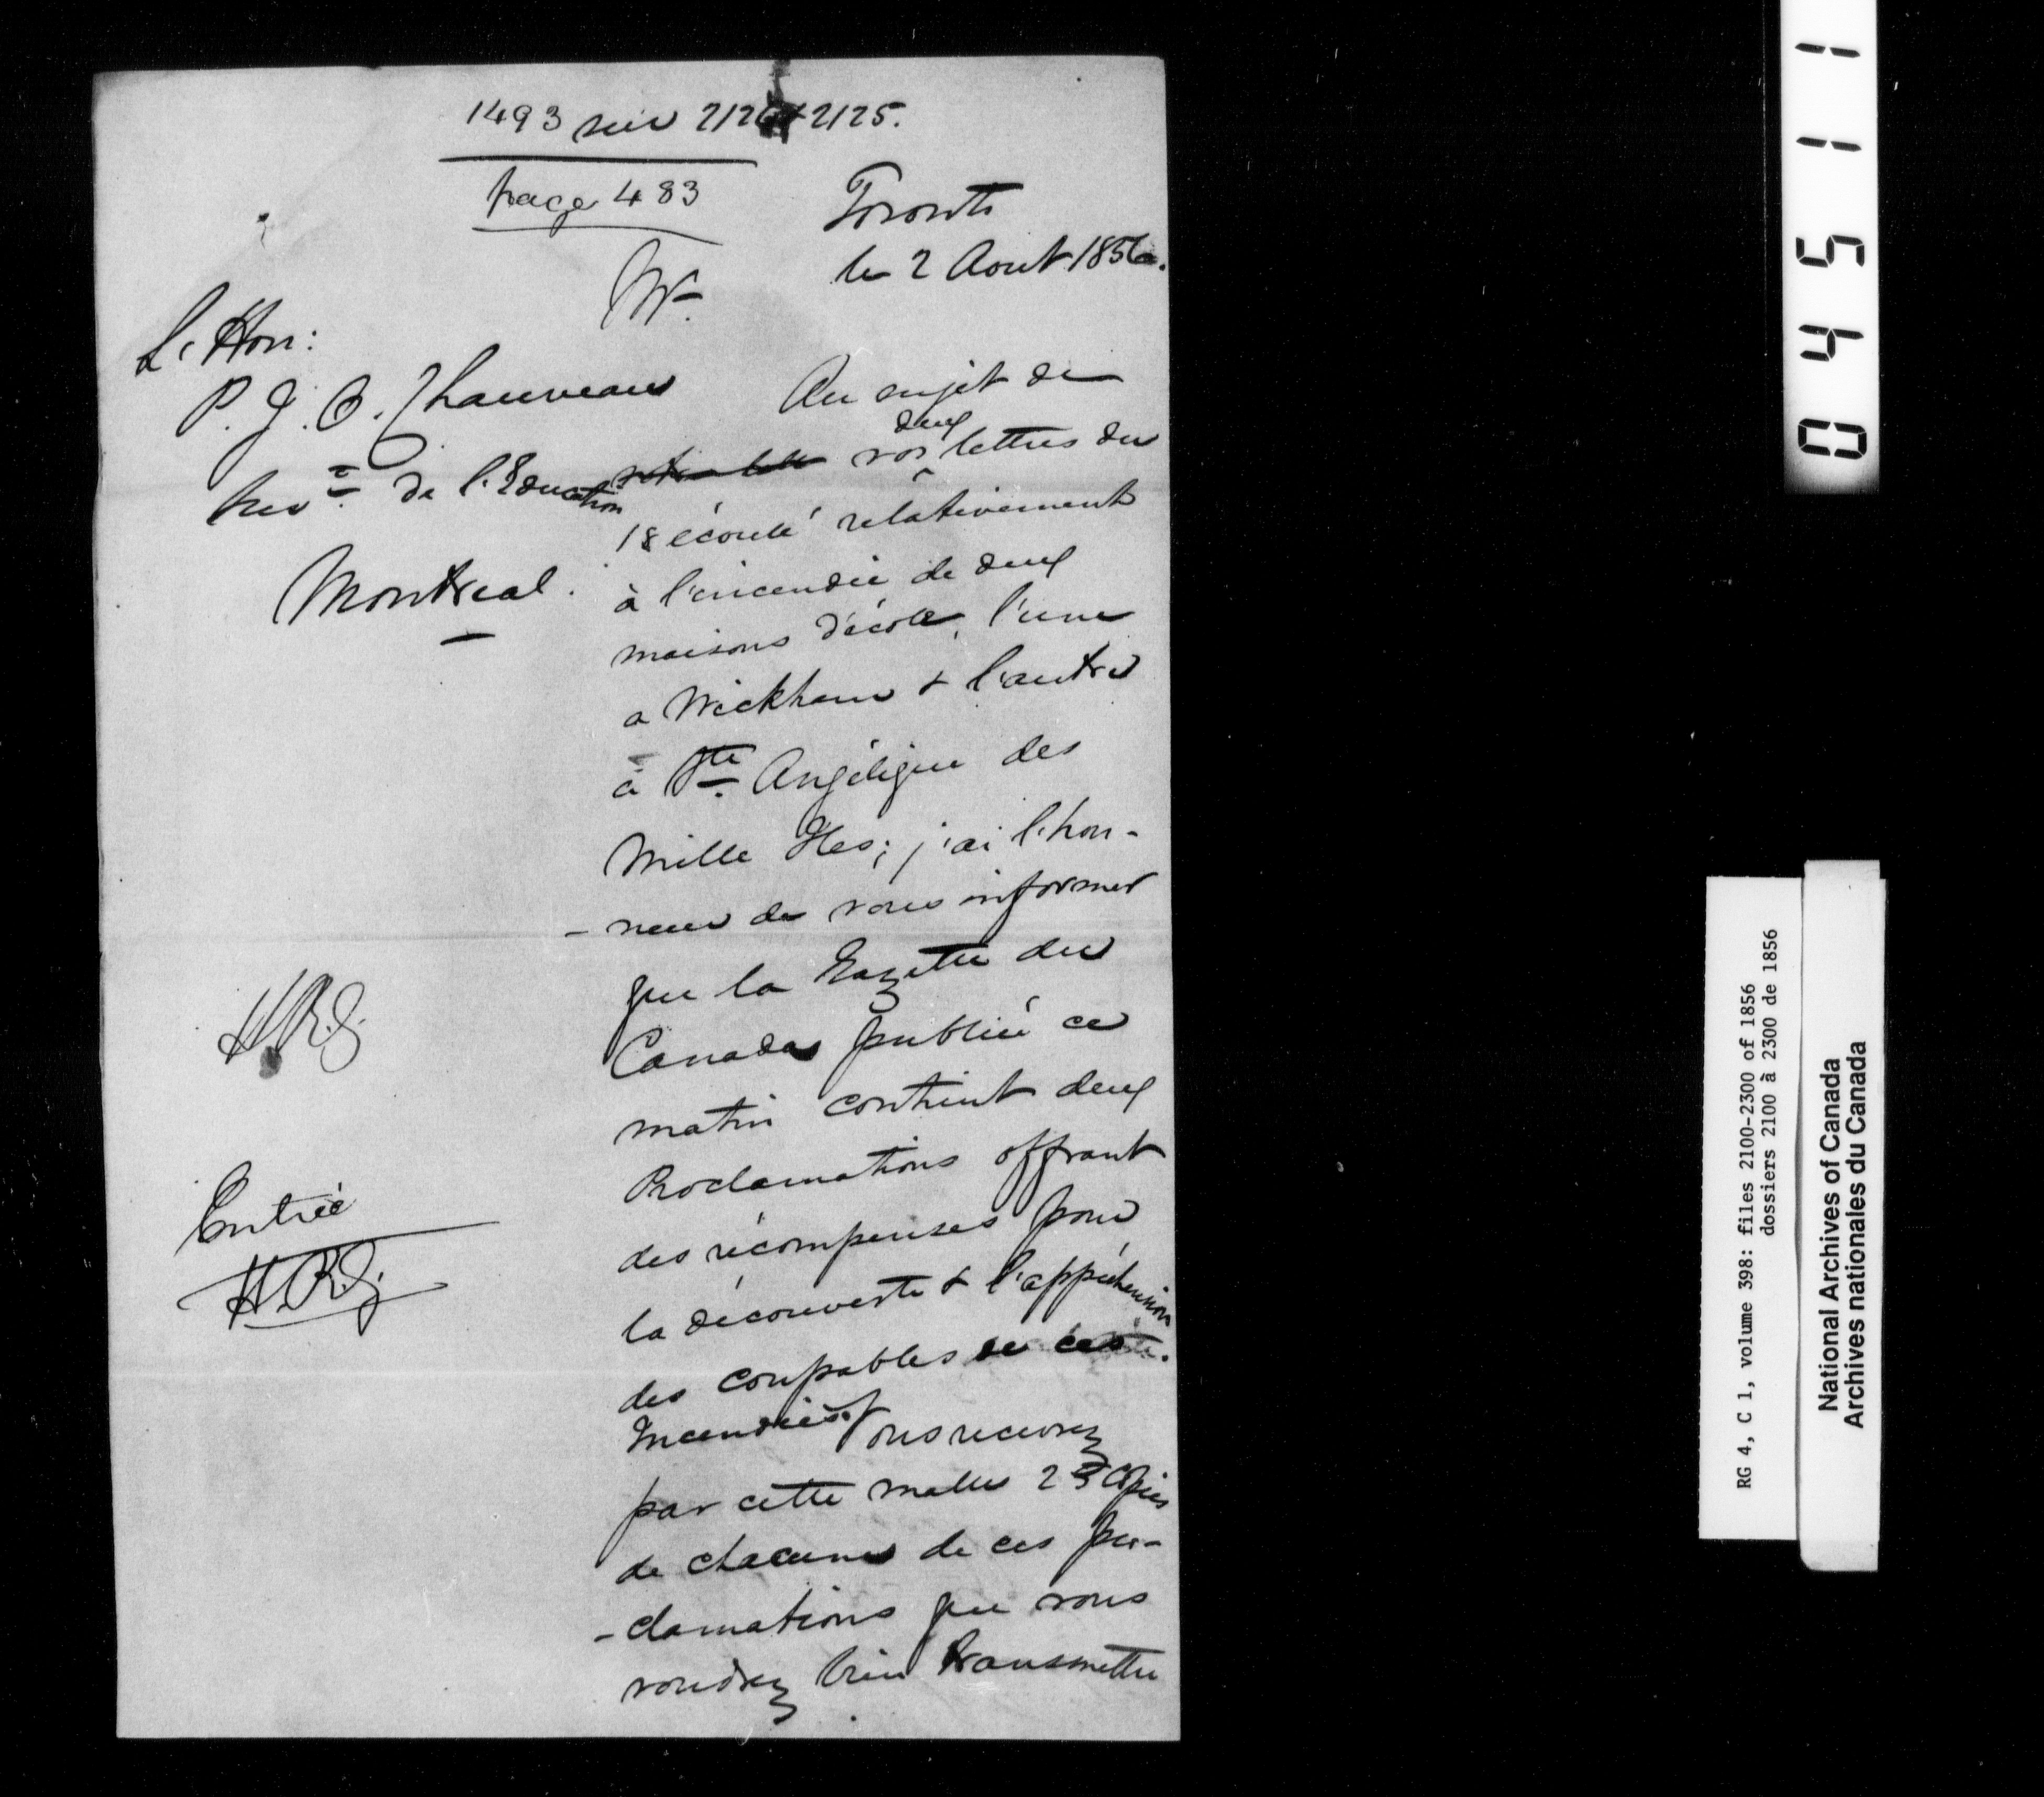 1493 sur 2126 & 2125.
page 483
Toronto
le 2 Aout 1856.
Mr.
L'Hon:
P. J. O. Chauveau
de l'Education
Montreal.
Au sujet de
deux
vos lettres du
18 écoulé relativement
à l'incendie de deux
maisons d'école, l'une
a Wickham & l'autre
à Ste Angélique des
Mille Iles; j'ai l'hon-
-neur de vous informer
que la Gazette du
Canada publiée ce
matin contient deux
Proclamations offrant
des récompenses pour
la découverte & l'appréhension
des coupables de ces
Incendies. Vous recevrez
par cette malle 25 Copies
de chacune de ces pro-
-clamations que vous
voudrez bien transmettre
Entrée
0451 1
RG 4, C 1, volume 398: files 2100-2300 of 1856
dossiers 2100 à 2300 de 1856
National Archives of Canada
Archives nationales du Canada